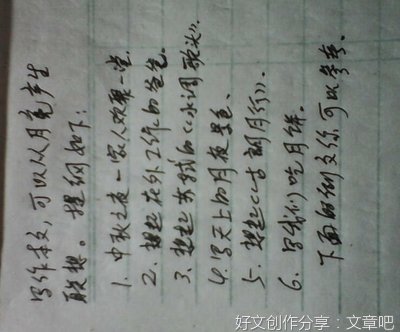 写作本文，可以从月亮产生
联想。提纲如下：
1. 中秋之夜一家人欢聚一堂。
2. 想起在外工作的爸爸。
3. 想起苏轼的《水调歌头》。
4. 写天上的月夜景色。
5. 想起《古朗月行》。
6. 写我们吃月饼。
下面的例文你可以参考。
好文创作分享：文章吧